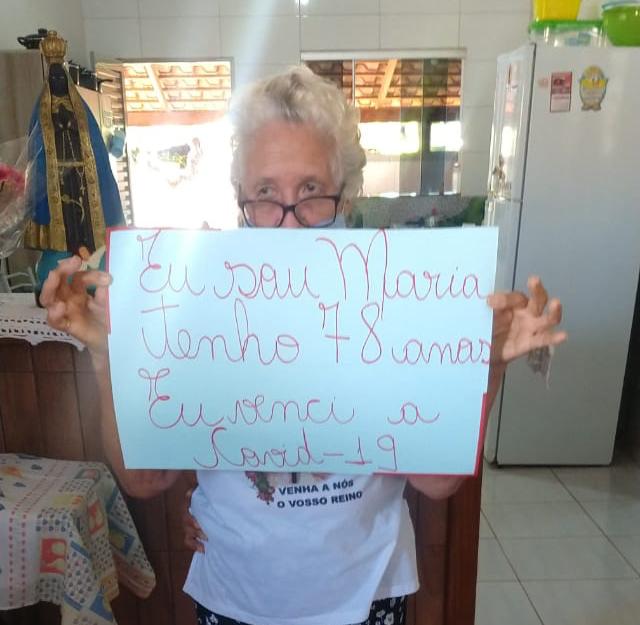 Eu sou Maria
tenho 78 anos
Eu venci a
Covid-19
VENHA A NÓS
O VOSSO REINO